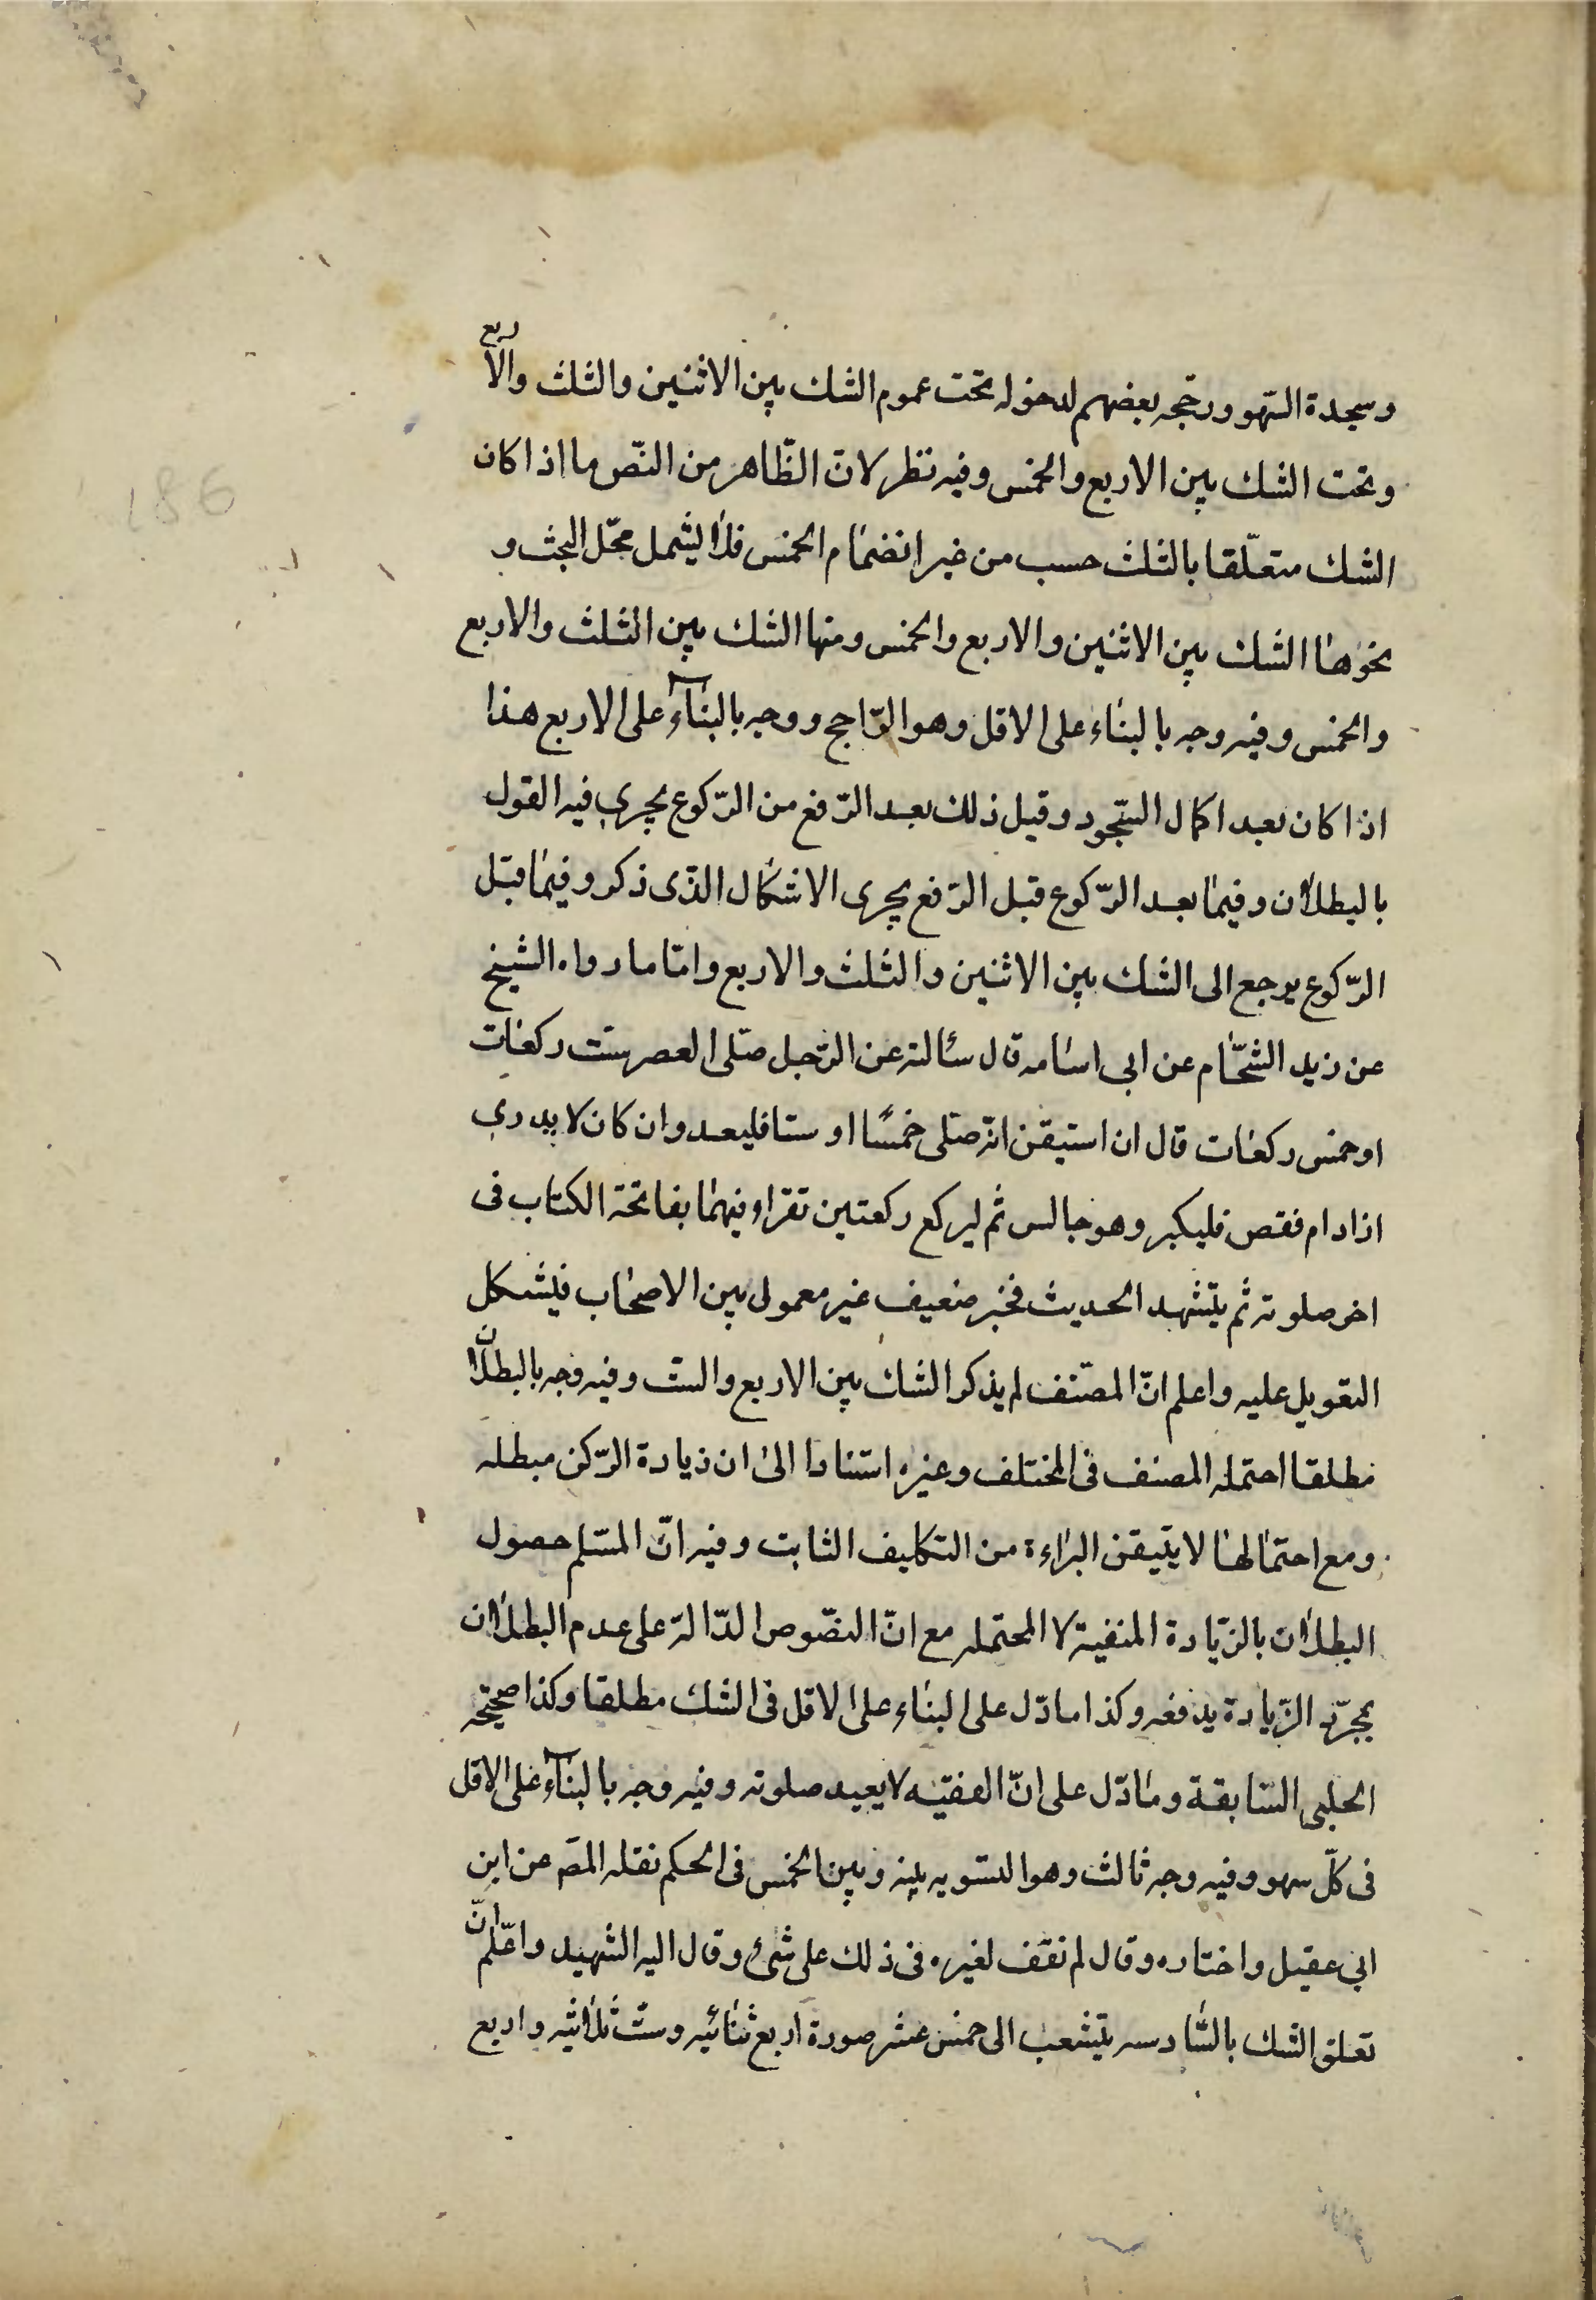 وسجدة السّهو ورجّحه بعضهم لدخوله تحت عموم الشك بين الاثنين والثلث والاربع
وتحت الشك بين الاربع والخمس وفيه نظر لانّ الظّاهر من النّص ما اذا كان
الشك متعلّقا بالثلث حسب من غير انضمام الخمس فلا يشمل محّل البحث و
نحوها الشك بين الاثنين والاربع والخمس ومنها الشك بين الثلث والاربع
والخمس وفيه وجه بالبناء على الاقل وهو الرّاجح ووجه بالبناء على الاربع هذا
اذا كان بعد اكمال السّجود وقبل ذلك بعد الرّفع من الرّكوع يجري فيه القول
بالبطلان وفيما بعد الرّكوع قبل الرّفع يجرى الاشكال الذّى ذكر وفيما قبل
الرّكوع يرجع الى الشك بين الاثنين والثلث والاربع وامّا ما رواه الشيخ
عن زيد الشحّام عن ابى اسامه قال سئالته عن الرّجل صّلى العصر ستت ركعات
او خمس ركعات قال ان استيقن انّه صّلى خمسًا او ستا فليعد وان كان لا يدري
ازاد ام نقص فليكبر وهو جالس ثم ليركع ركعتين تقراء فيهما بفاتحة الكتاب فى
اخر صلوته ثم يتشهد الحديث فخبر ضعيف غير معمول بين الاصحاب فيشكل
التعويل عليه واعلم انّ المصّنف لم يذكر الشك بين الاربع والست وفيه وجه بالبطلان
مطلقا احتمله المصنف فى المختلف وغيره استنادا الى ان زيادة الرّكن مبطله
ومع احتمالها لا يتيقن البراءة من التكليف الثابت وفيه انّ المسّلم حصول
البطلان بالزّيادة المنفية لا المحتمله مع انّ النصّوص الدّالة على عدم البطلان
بمجرّد الزّيادة يدفعه وكذا ما دّل على البناء على الاقل فى الشك مطلقا وكذا صحيحه
الحلبى السّابقة وما دّل على انّ الفقيه لا يعيد صلوته وفيه وجه بالبناء على الاقل
فى كلّ سهو وفيه وجه ثالث وهو التسويه بينه وبين الخمس فى الحكم نقله المصَ عن ابن
ابي عقيل واختاره وقال لم نقف لغيره فى ذلك على شئ وقال اليه الشهيد واعلم انّ
تعلق الشك بالسّادسه يتشعب الى خمس عشر صورة اربع ثنائيه وستّ ثلاثيه واربع
186